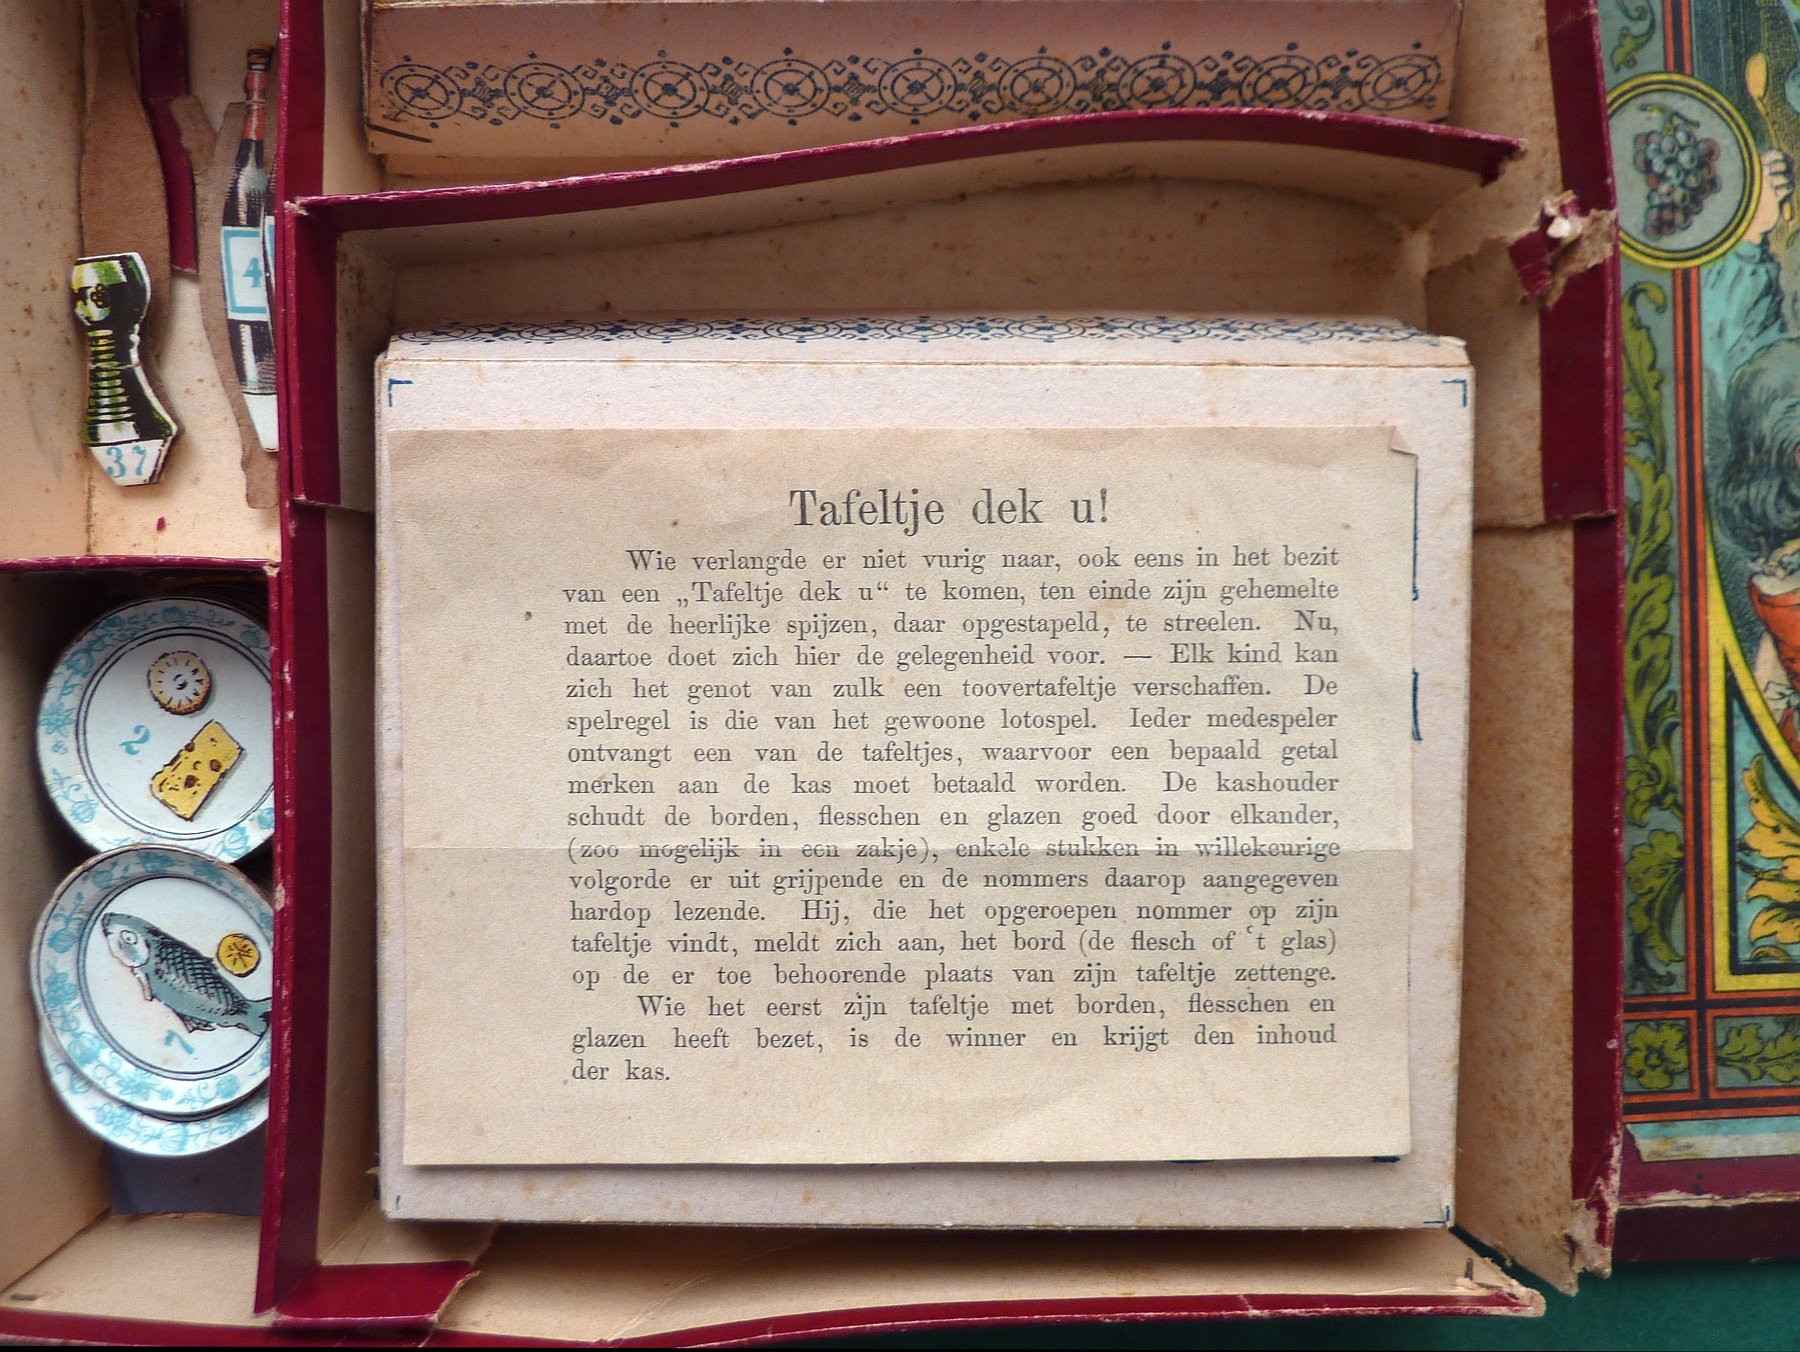 Tafeltje dek u!
Wie verlangde er niet vurig naar, ook eens in het bezit
van een „Tafeltje dek u“ te komen, ten einde zijn gehemelte
met de heerlijke spijzen, daar opgestapeld, te streelen. Nu,
daartoe doet zich hier de gelegenheid voor. — Elk kind kan
zich het genot van zulk een toovertafeltje verschaffen. De
spelregel is die van het gewoone lotospel. Ieder medespeler
ontvangt een van de tafeltjes, waarvoor een bepaald getal
merken aan de kas moet betaald worden. De kashouder
schudt de borden, flesschen en glazen goed door elkander,
(zoo mogelijk in een zakje), enkele stukken in willekeurige
volgorde er uit grijpende en de nommers daarop aangegeven
hardop lezende. Hij, die het opgeroepen nommer op zijn
tafeltje vindt, meldt zich aan, het bord (de flesch of ‘t glas)
op de er toe behoorende plaats van zijn tafeltje zettenge.
Wie het eerst zijn tafeltje met borden, flesschen en
glazen heeft bezet, is de winner en krijgt den inhoud
der kas.
4
37
2
7